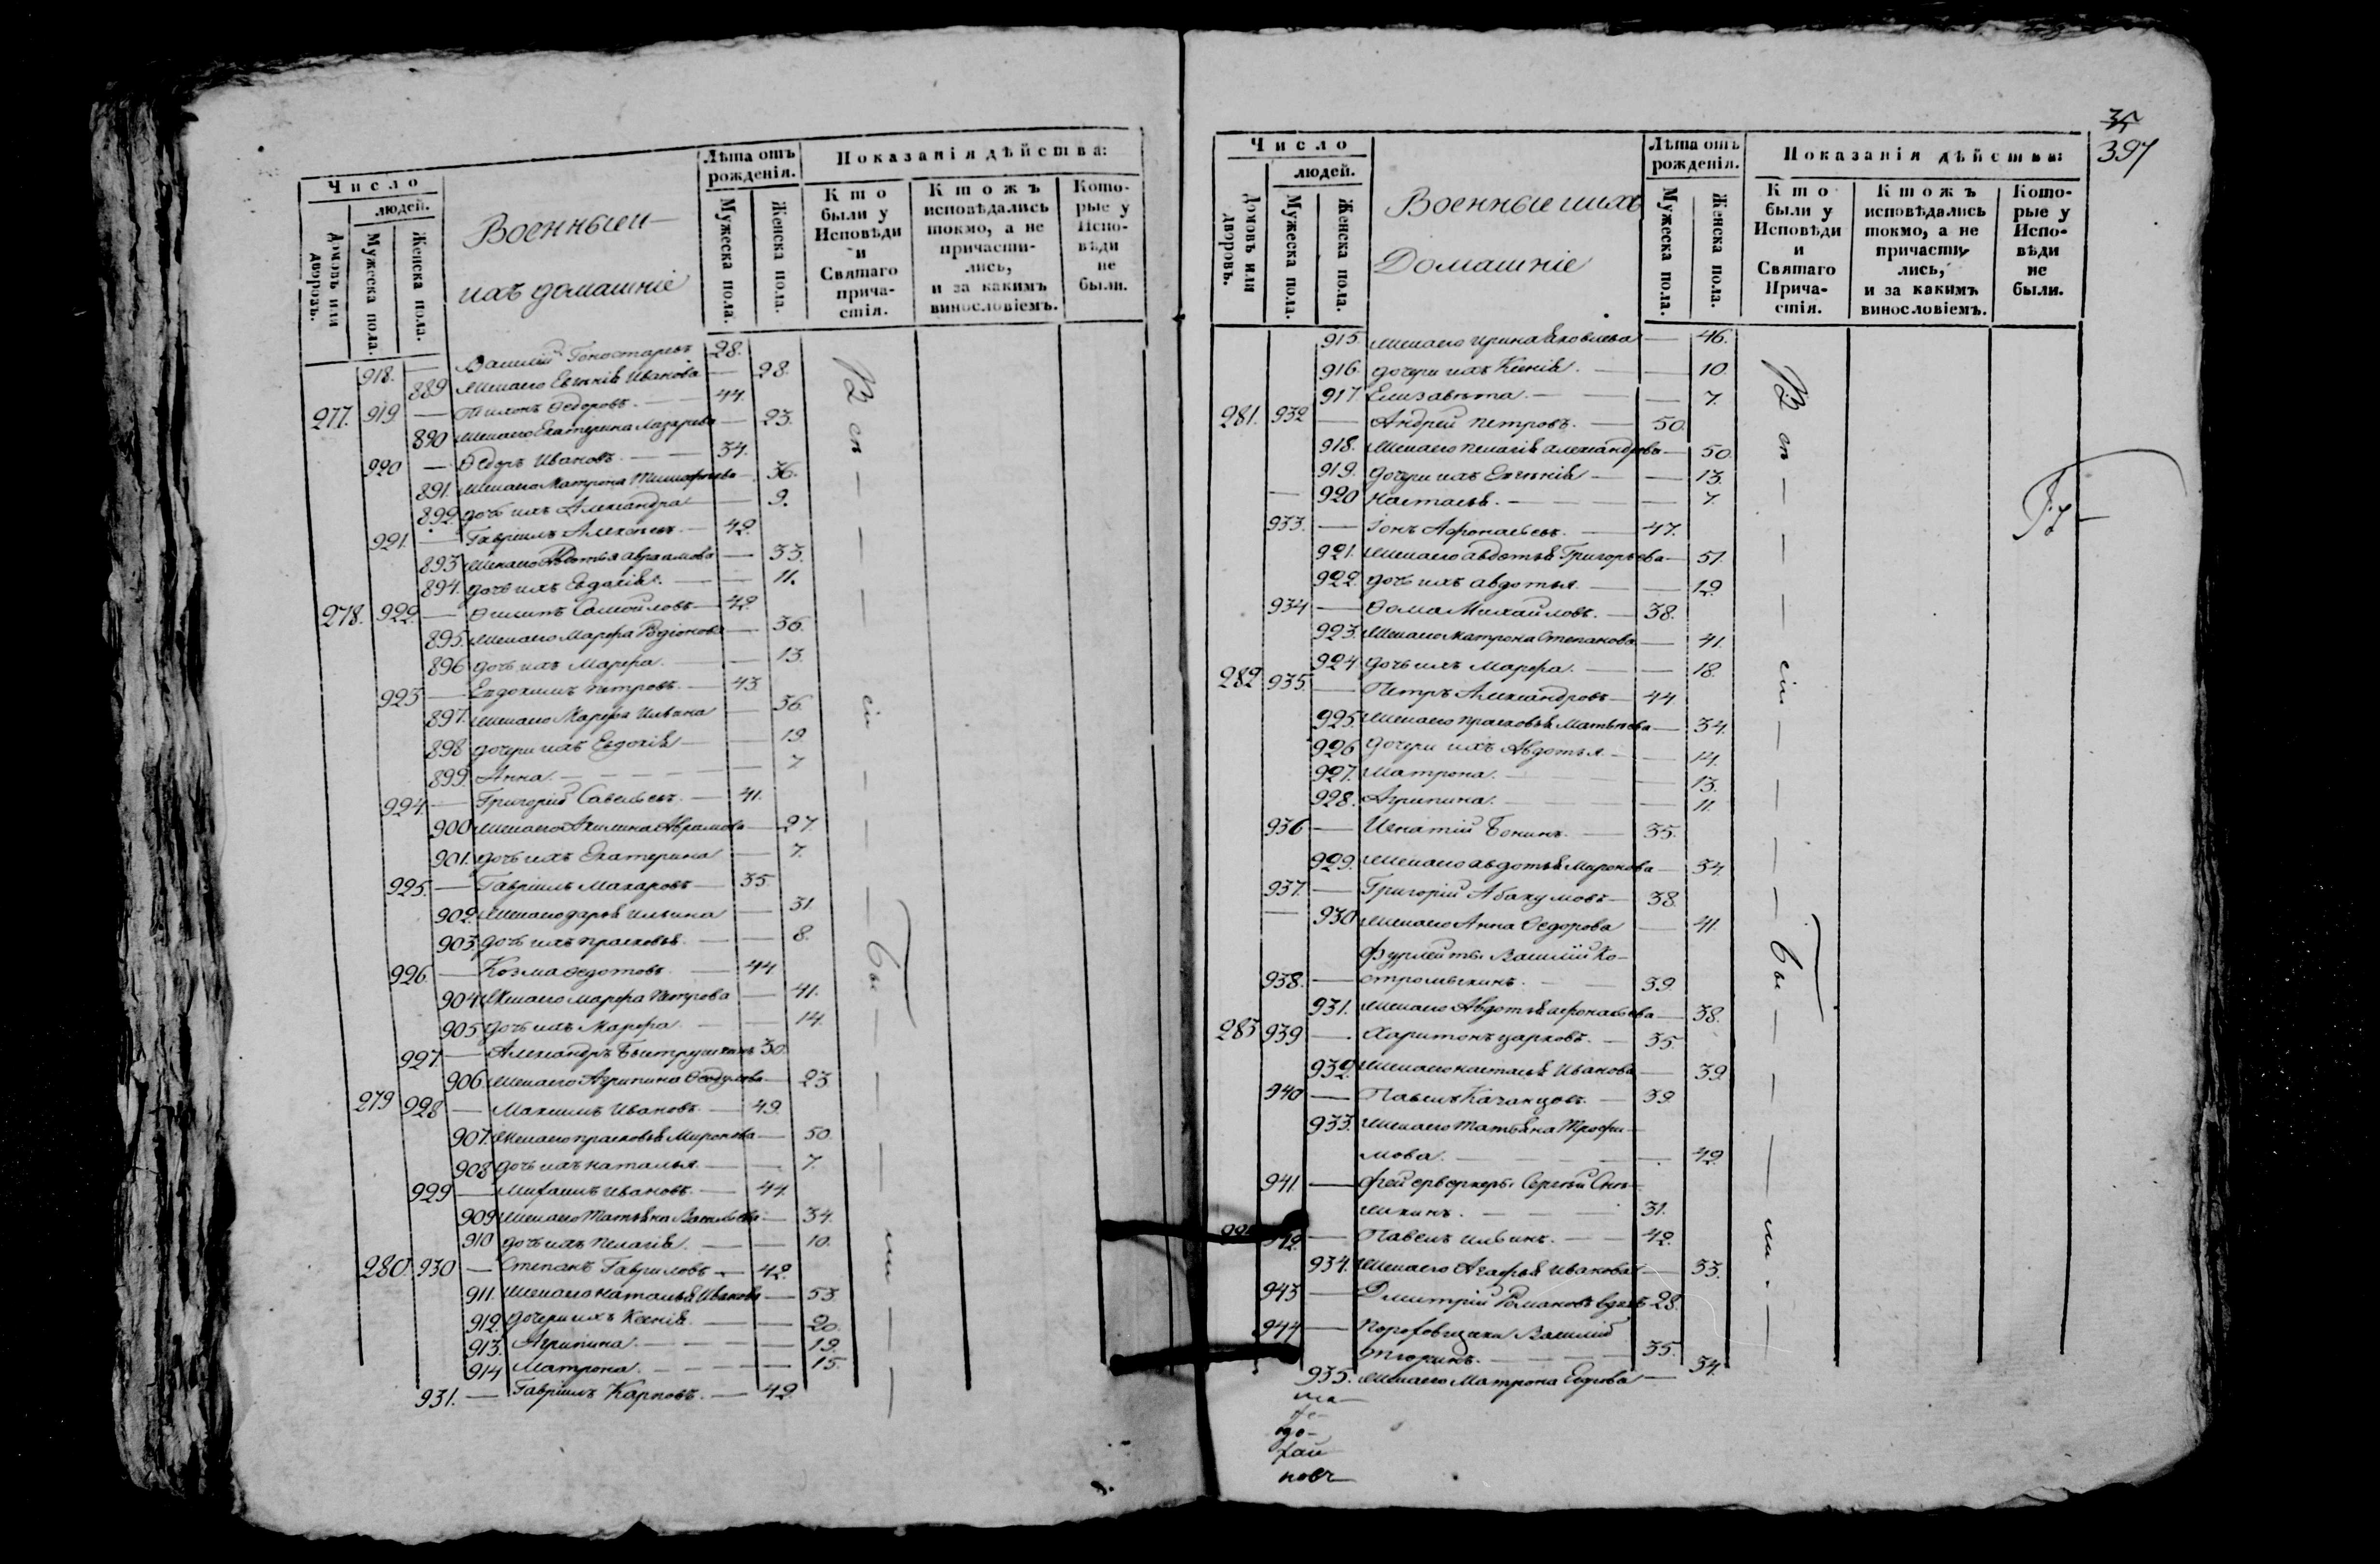 Число
людей.
Домовъ или дворовъ.
Мужеска пола.
Женска пола.
Военныеи
ихъ домашнiе
Лѣта отъ рожденiя.
Мужеска пола.
Женска пола.
Показанiя дѣйства:
Кто были у Исповѣди и Святаго причастiя.
Ктожъ исповѣдались токмо, а не причастились, и за какимъ винословiемъ.
Которые у Исповѣди не были.
918. — Василiй 28.
889 жена его Евгенiя Иванова — 28.
277. 919 — Тихонъ Ѳедоровъ. — 44.
890 жена его Екатерина Лазарева — 23.
920 — Ѳедоръ Ивановъ. — 34.
891. жена его Матрона — 36.
892. дочь ихъ Александра — 9.
921. — Гаврiилъ Алексѣевъ. — 42.
893 жена его Авдотья Авраамова — 33.
894. дочь ихъ Евдокiя. — 11.
278. 922. — Филипъ Самойловъ — 42.
895. жена его Марфа Родiонова — 36.
896 дочь ихъ Марфа. — 13.
923 — Евдокимъ Петровъ. — 43.
897. жена его Марфа Ильина — 36.
898 дочери ихъ Евдокiя — 19.
899. Анна. — 7
924. — Григорiй Савельевъ. — 41.
900 жена его Акилина Аврамова — 27.
901. дочь ихъ Екатерина — 7.
925. — Гаврiилъ Макаровъ — 35.
902. жена его Дарья Ильина — 31.
903. дочь ихъ Прасковья. — 8.
926. — Козма Ѳедотовъ. — 44.
904 жена его Марфа Петрова — 41.
905 дочь ихъ Марфа. — 14.
927. — Александръ Быструшкинъ 30.
906 жена его Агрипина — 23
279 928 — Максимъ Ивановъ. — 49.
907. жена его Прасковья Миронова — 50.
908 дочь ихъ Наталья. — 7.
929 — Михаилъ Ивановъ. — 44.
909 жена его Татьяна Васильева — 34.
910 дочь ихъ Пелагiя. — 10.
280. 930 — Степанъ Гавриловъ. — 42.
911. жена его Наталья Иванова — 53.
912. дочери ихъ Ксенiя. — 20.
913. Агрипина. — 19.
914 Матрона. — 15.
931. — Гаврiилъ Карповъ. — 42.
35
397
Число
людей.
Домовъ или дворовъ.
Мужеска пола.
Женска пола.
Военные ихъ
Домашнiе
Лѣта отъ рожденiя.
Мужеска пола.
Женска пола.
Показанiя дѣйства:
Кто были у Исповѣди и Святаго Причастiя.
Ктожъ исповѣдались токмо, а не причастились, и за какимъ винословiемъ.
Которые у Исповѣди не были.
915. жена его Ирина Яковлева — 46.
916. дочери ихъ Ксенiя. — 10.
917 Елизавета. — 7.
281. 932 — Андрей Петровъ. — 50.
918. жена его Пелагiя Александрова — 50.
919. дочери ихъ Евгенiя — 13.
— 920 Настасья. — 7.
933. — Iонъ Афонасьевъ. — 47.
921. жена его Авдотья Григорьева — 51.
922. дочь ихъ Авдотья. — 12.
934 — Ѳома Михайловъ. — 38.
923. жена его Матрона Степанова — 41.
924 дочь ихъ Марфа. — 18.
282 935. — Петръ Александровъ — 44.
925. жена его Прасковья Матвѣева — 34.
926 дочери ихъ Авдотья. — 14.
927. Матрона. — 13.
928. Агрипина. — 11.
936 — Игнатiй Бокинъ. — 35.
929. жена его Авдотья Миронова — 34
937. — Григорiй Абакумовъ — 38.
— 930 жена его Анна Ѳедорова — 41.
Фурлейтъ Василiй Ко-
938. — стромыкинъ. — 39.
931. жена его Авдотья Афонасьева — 38.
283 939 — Харитонъ Царковъ. — 35.
932. жена его Настасья Иванова — 39.
940 — Павелъ Качанцовъ. — 39.
933. жена его Татьяна Трофи-
мова. — 42.
941. — фейерверкеръ Сергѣй Сит-
никинъ. — 31.
— Павелъ Ильинъ. — 42.
934. жена его Агафья Иванова — 33.
943 — Дмитрiй Романовъ вдовъ 28.
944 — Василiй
— 35.
935. жена его Матрона — 34.